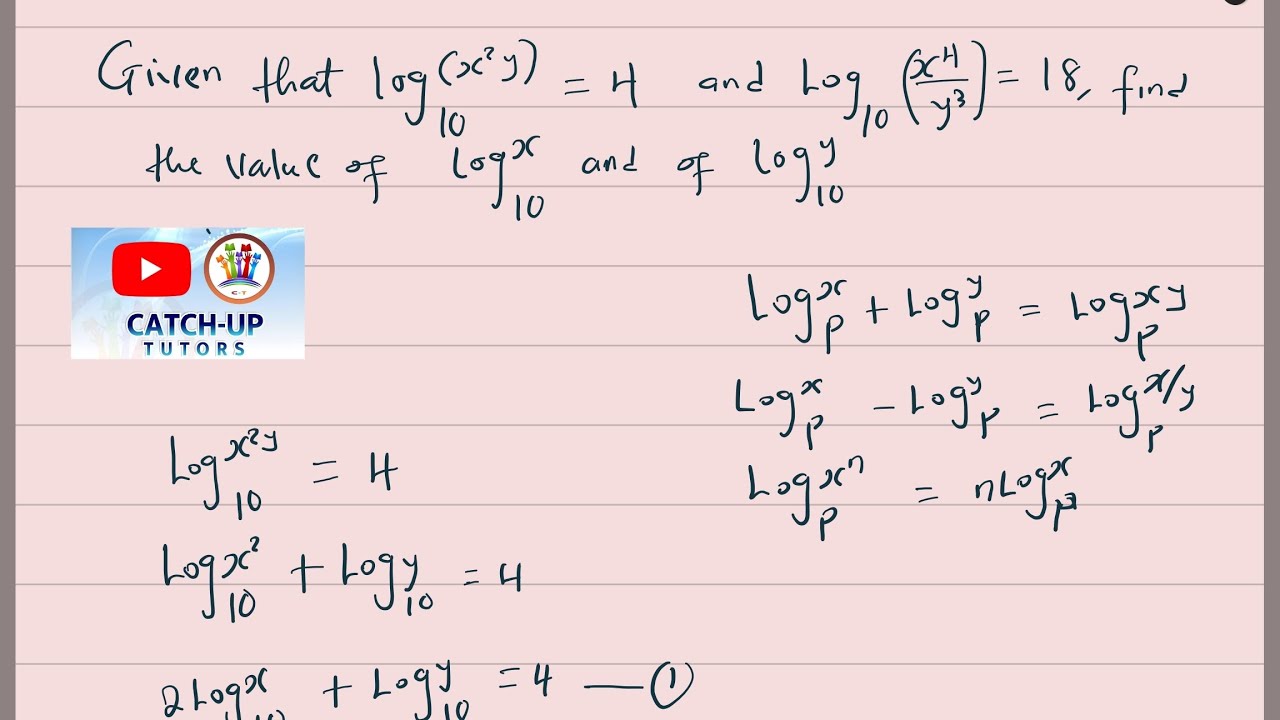 Given that log₁₀(x²y) = 4 and Log₁₀(x⁴/y³) = 18, find
the value of Log₁₀x and of Log₁₀y
CATCH-UP
TUTORS
C·T
Logₚx + Logₚy = Logₚxy
Logₚx − Logₚy = Logₚx/y
Logₚxⁿ = nLogₚx
Log₁₀x²y = 4
Log₁₀x² + Log₁₀y = 4
2Log₁₀x + Log₁₀y = 4 — ①